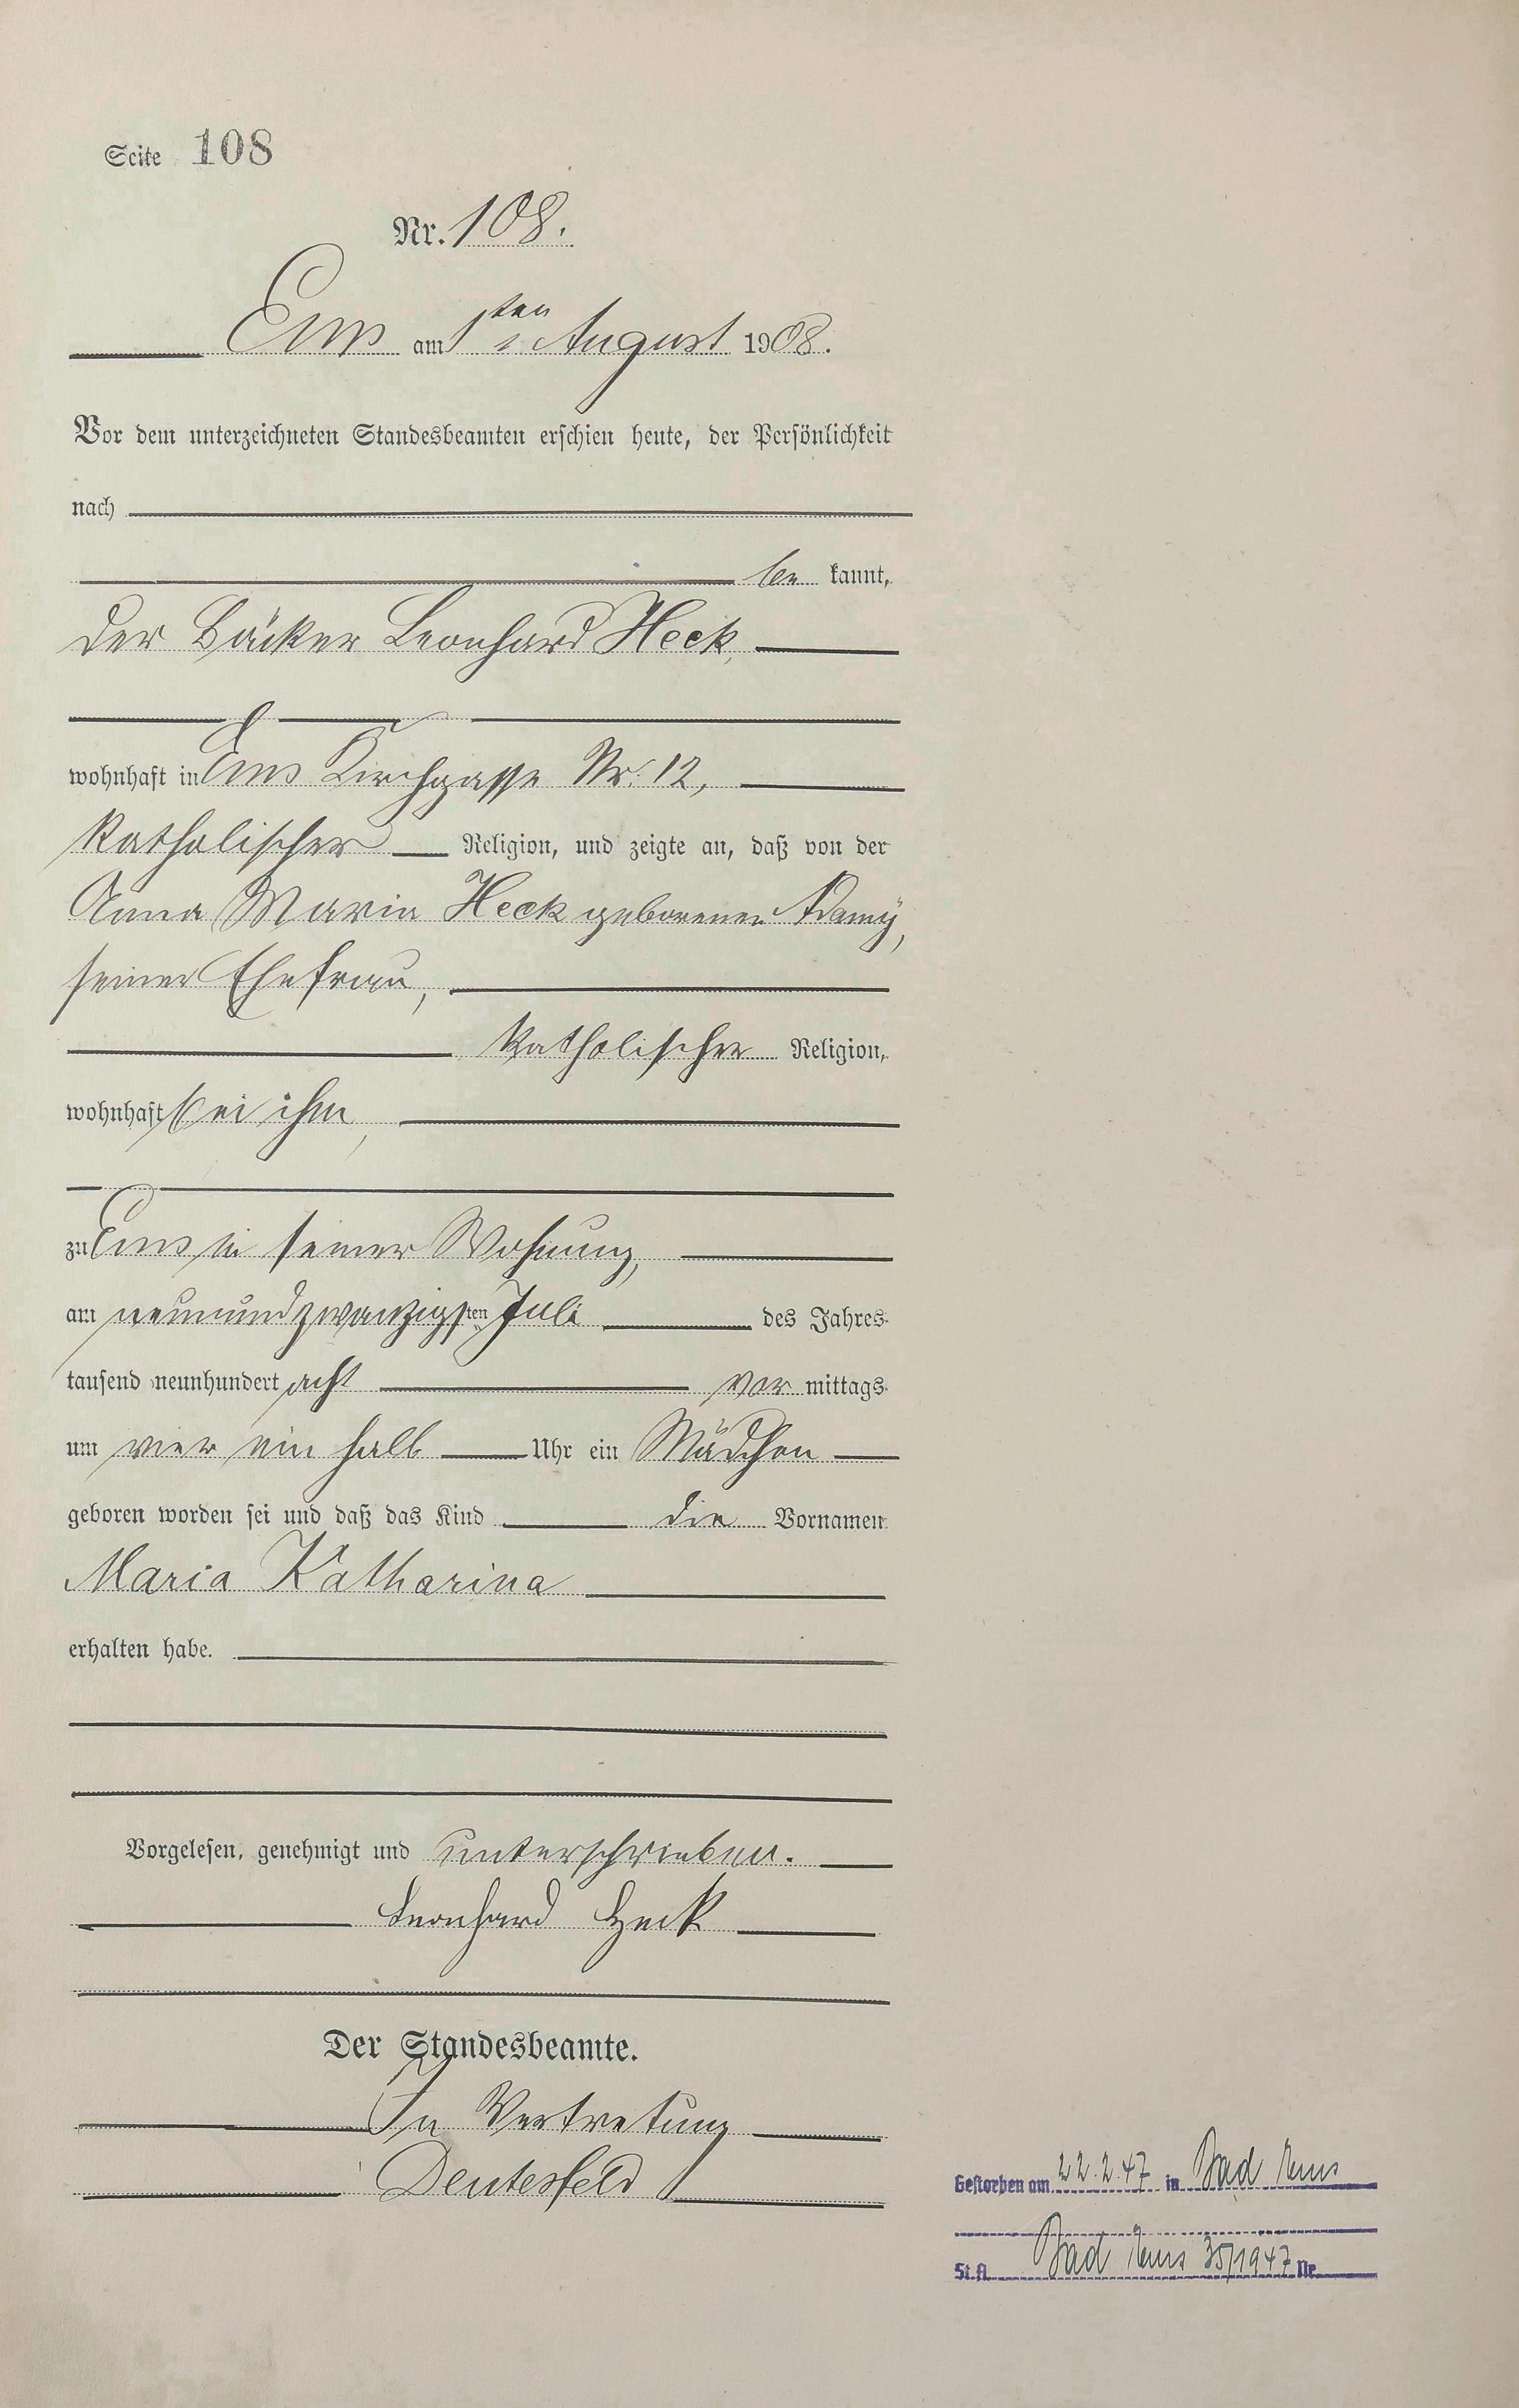 Seite 108
Nr. 108.
Ems am 1ten August 1908.
Vor dem unterzeichneten Standesbeamten erschien heute, der Persönlichkeit
nach
be kannt,
der Bäcker Leonhard Heck,
wohnhaft in Ems Kirchgasse Nr. 12,
katholischer Religion, und zeigte an, daß von der
Anna Maria Heck geborenen Adamy,
seiner Ehefrau,
katholischer Religion,
wohnhaft bei ihm,
zu Ems in seiner Wohnung,
am neunundzwanzigsten Juli des Jahres
tausend neunhundert acht vor mittags
um vier ein halb Uhr ein Mädchen
geboren worden sei und daß das Kind die Vornamen
Maria Katharina
erhalten habe.
Vorgelesen, genehmigt und unterschrieben.
Leonhard Heck
Der Standesbeamte.
In Vertretung
Deutesfeld
Gestorben am 22.2.47 in Bad Ems
St.A. Bad Ems 35/1947 Nr.